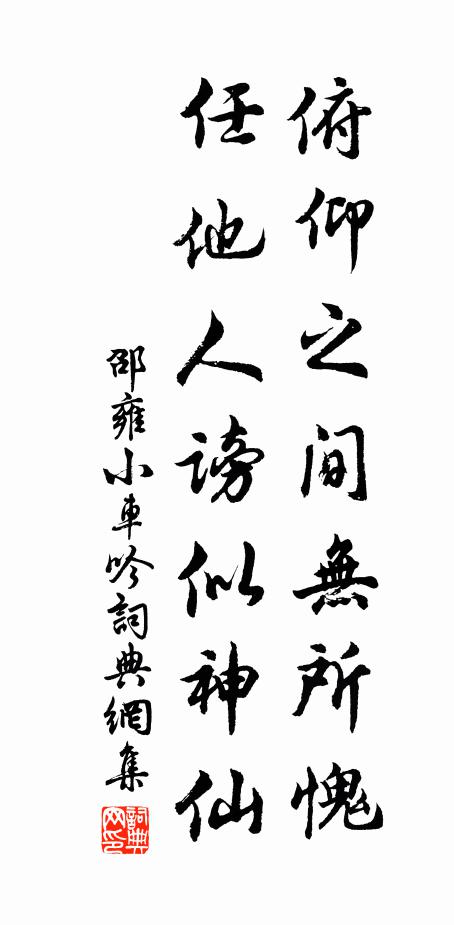 俯仰之間無所愧
任他人謗似神仙
邵雍小車吟詞典網集
詞典網印